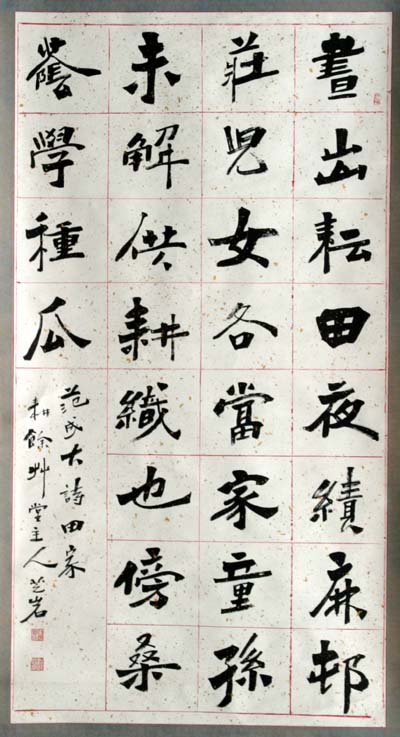 晝出耘田夜績麻邨
莊兒女各當家童孫
未解供耕織也傍桑
蔭學種瓜
范成大詩田家
耕餘艸堂主人芝岩